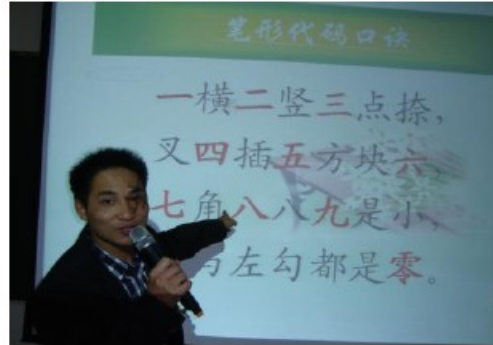 笔形代码口诀
一横二竖三点捺，
叉四插五方块六，
七角八八九是小，
与左勾都是零。